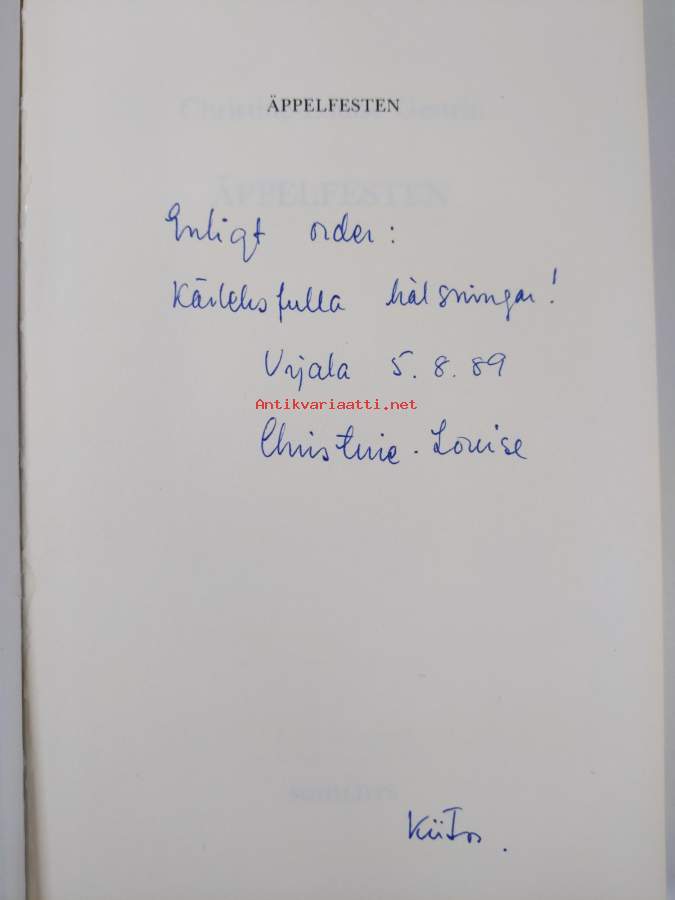 ÄPPELFESTEN
Enligt order:
Kärleksfulla hälsningar!
Urjala 5.8.89
Antikvariaatti.net
Christine-Louise
Kiitos.